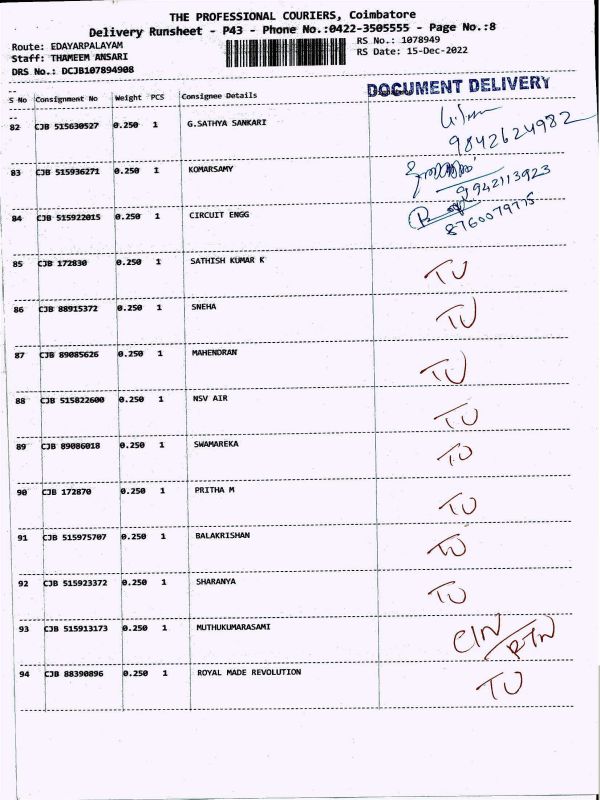 THE PROFESSIONAL COURIERS, Coimbatore
Delivery Runsheet - P43 - Phone No.:0422-3505555 - Page No.:8
Route: EDAYARPALAYAM RS No.: 1078949
Staff: THAMEEM ANSARI RS Date: 15-Dec-2022
DRS No.: DCJB107894908
DOCUMENT DELIVERY
S No Consignment No Weight PCS Consignee Details
82 CJB 515630527 0.250 1 G.SATHYA SANKARI
9842624982
83 CJB 515936271 0.250 1 KOMARSAMY
9942113923
84 CJB 515922015 0.250 1 CIRCUIT ENGG
8760079775
85 CJB 172830 0.250 1 SATHISH KUMAR K TU
86 CJB 88915372 0.250 1 SNEHA TU
87 CJB 89085626 0.250 1 MAHENDRAN TU
88 CJB 515822600 0.250 1 NSV AIR TU
89 CJB 89086018 0.250 1 SWAMAREKA TU
90 CJB 172870 0.250 1 PRITHA M TU
91 CJB 515975707 0.250 1 BALAKRISHAN TU
92 CJB 515923372 0.250 1 SHARANYA TU
93 CJB 515913173 0.250 1 MUTHUKUMARASAMI CIN/RTN
94 CJB 88390896 0.250 1 ROYAL MADE REVOLUTION TU